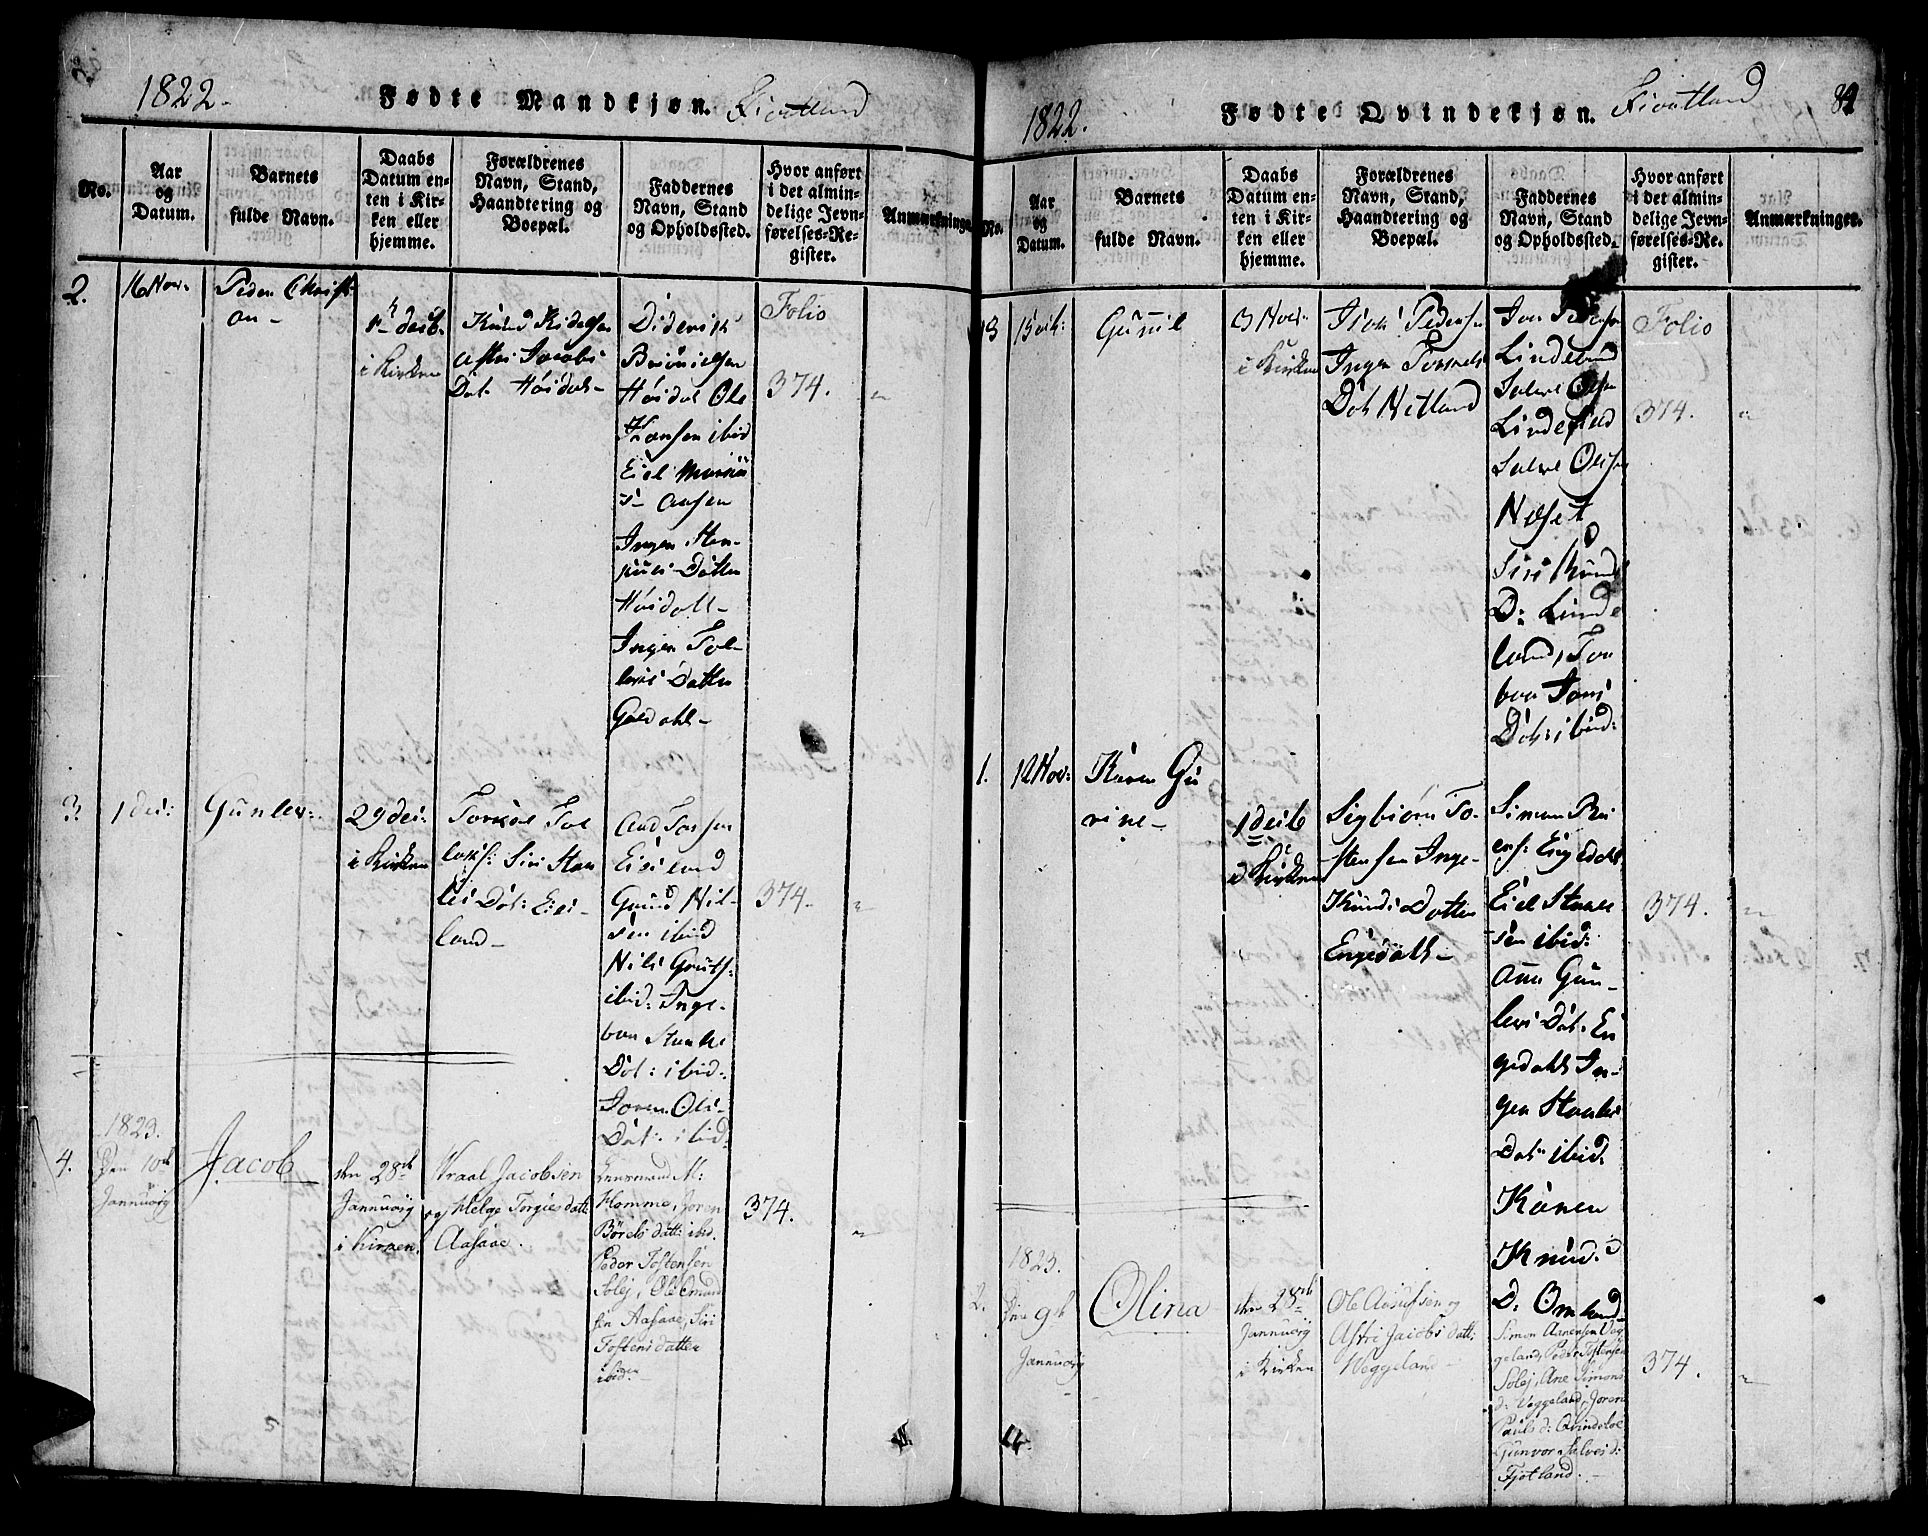 1822.
Fødte Mandkjøn.
Fiotland
No.
Aar
og
Datum.
Barnets
fulde Navn.
Daabs
Datum en-
ten i Kir-
ken eller
hjemme.
Forældrenes
Navn, Stand,
Haandtering og
Boepæl.
Faddernes
Navn, Stand
og Opholdssted.
Hvor anført
i det almin-
delige Jevn-
førelses-Re-
gister.
Anmærkninger
2.
16 Nov.
Peder Christ-
an-
1 decb.
i Kirken
Astri Jacobs
Dot. Høidal-
Diderik
Høidal Ole
Hansen ibid
Eiel
Aasen
Ingen Sten-
Datter
Høidall-
Ingen Tol-
levs Datter
Gredahl-
Folio
374.
3.
1 dec:
Gunlev:
29 dec:
i Kirken
Torkel Tol
lefs: Siri Staa
les Dot: Eiesland-
And Torsen
Eiesland
Gunud Nil-
sen ibid
Nils Gruts:
ibid: Inge-
bor Staale
Dot: ibid:
Joren Ols-
Dot: ibid:
374.
1823.
4.
Den 10de
Jannuarig
Jacob
den 28de
Jannuarig
i Kirken.
Vraal Jacobsen
og Helge Torgiesdatt:
Aasaae.
M:
Homme, Joren
Børels datt: ibid.
Peder Tostensen
Solej, Ole Omund
sen Aasaae, Siri
Tostensdatter
ibid:
374.
1822.
Fødte Qvindekjøn.
Fiotland
84
No.
Aar
og
Datum.
Barnets
fulde Navn.
Daabs
Datum en-
ten i Kir-
ken eller
hjemme.
Forældrenes
Navn, Stand,
Haandtering og
Boepæl.
Faddernes
Navn, Stand
og Opholdssted.
Hvor anført
i det almin-
delige Jevn-
førelses-Re-
gister.
Anmærkninger.
13
15 oct:
Gunil
3 Nov.
i Kirken
Isak Pedersen
Ingen Tormods
Dot Netland
Jon Pedersen
Lindeland
Salve Olsen
Lindeland
Salve Olsen
Neset
Siri Knuds
D: Linde
land, Tor
bor Jons
Dot: ibid:
Folio
374.
1.
12 Nov:
Karen Gu
rine-
1 decb
i Kirken
Sigbiørn To-
stensen Inge-
Knuds Datter
Engedahl-
Simon Rei
ers: Engedahl
Eiel Staale
sen ibid:
Ann Gun-
levs Dot: En
gedahl In-
gen Staales
Dot: ibid.
Karen
Knud:
D: Omland
374.
1823.
2.
Den 9de
Jannuarig
Olina
den 28de
Jannuarig
i Kirken
Ole Aasufsen og
Astri Jacobs datt:
Veggeland-
Simon Aanensen Veg
geland, Peder Tostensen
Solej, Ane Simons
d: Veggeland, Joren
Pauls d: Qvindeloe
Gunvor Salves d:
Fjotland.-
374.